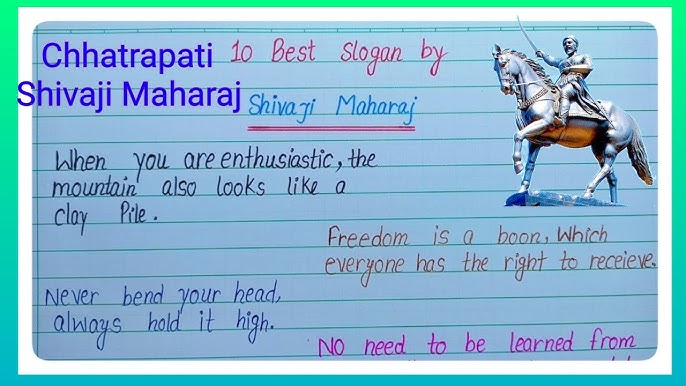 Chhatrapati
Shivaji Maharaj
10 Best Slogan by
Shivaji Maharaj
When you are enthusiastic, the
mountain also looks like a
clay Pile.
Freedom is a boon, Which
everyone has the right to receieve.
Never bend your head,
always hold it high.
NO need to be learned from